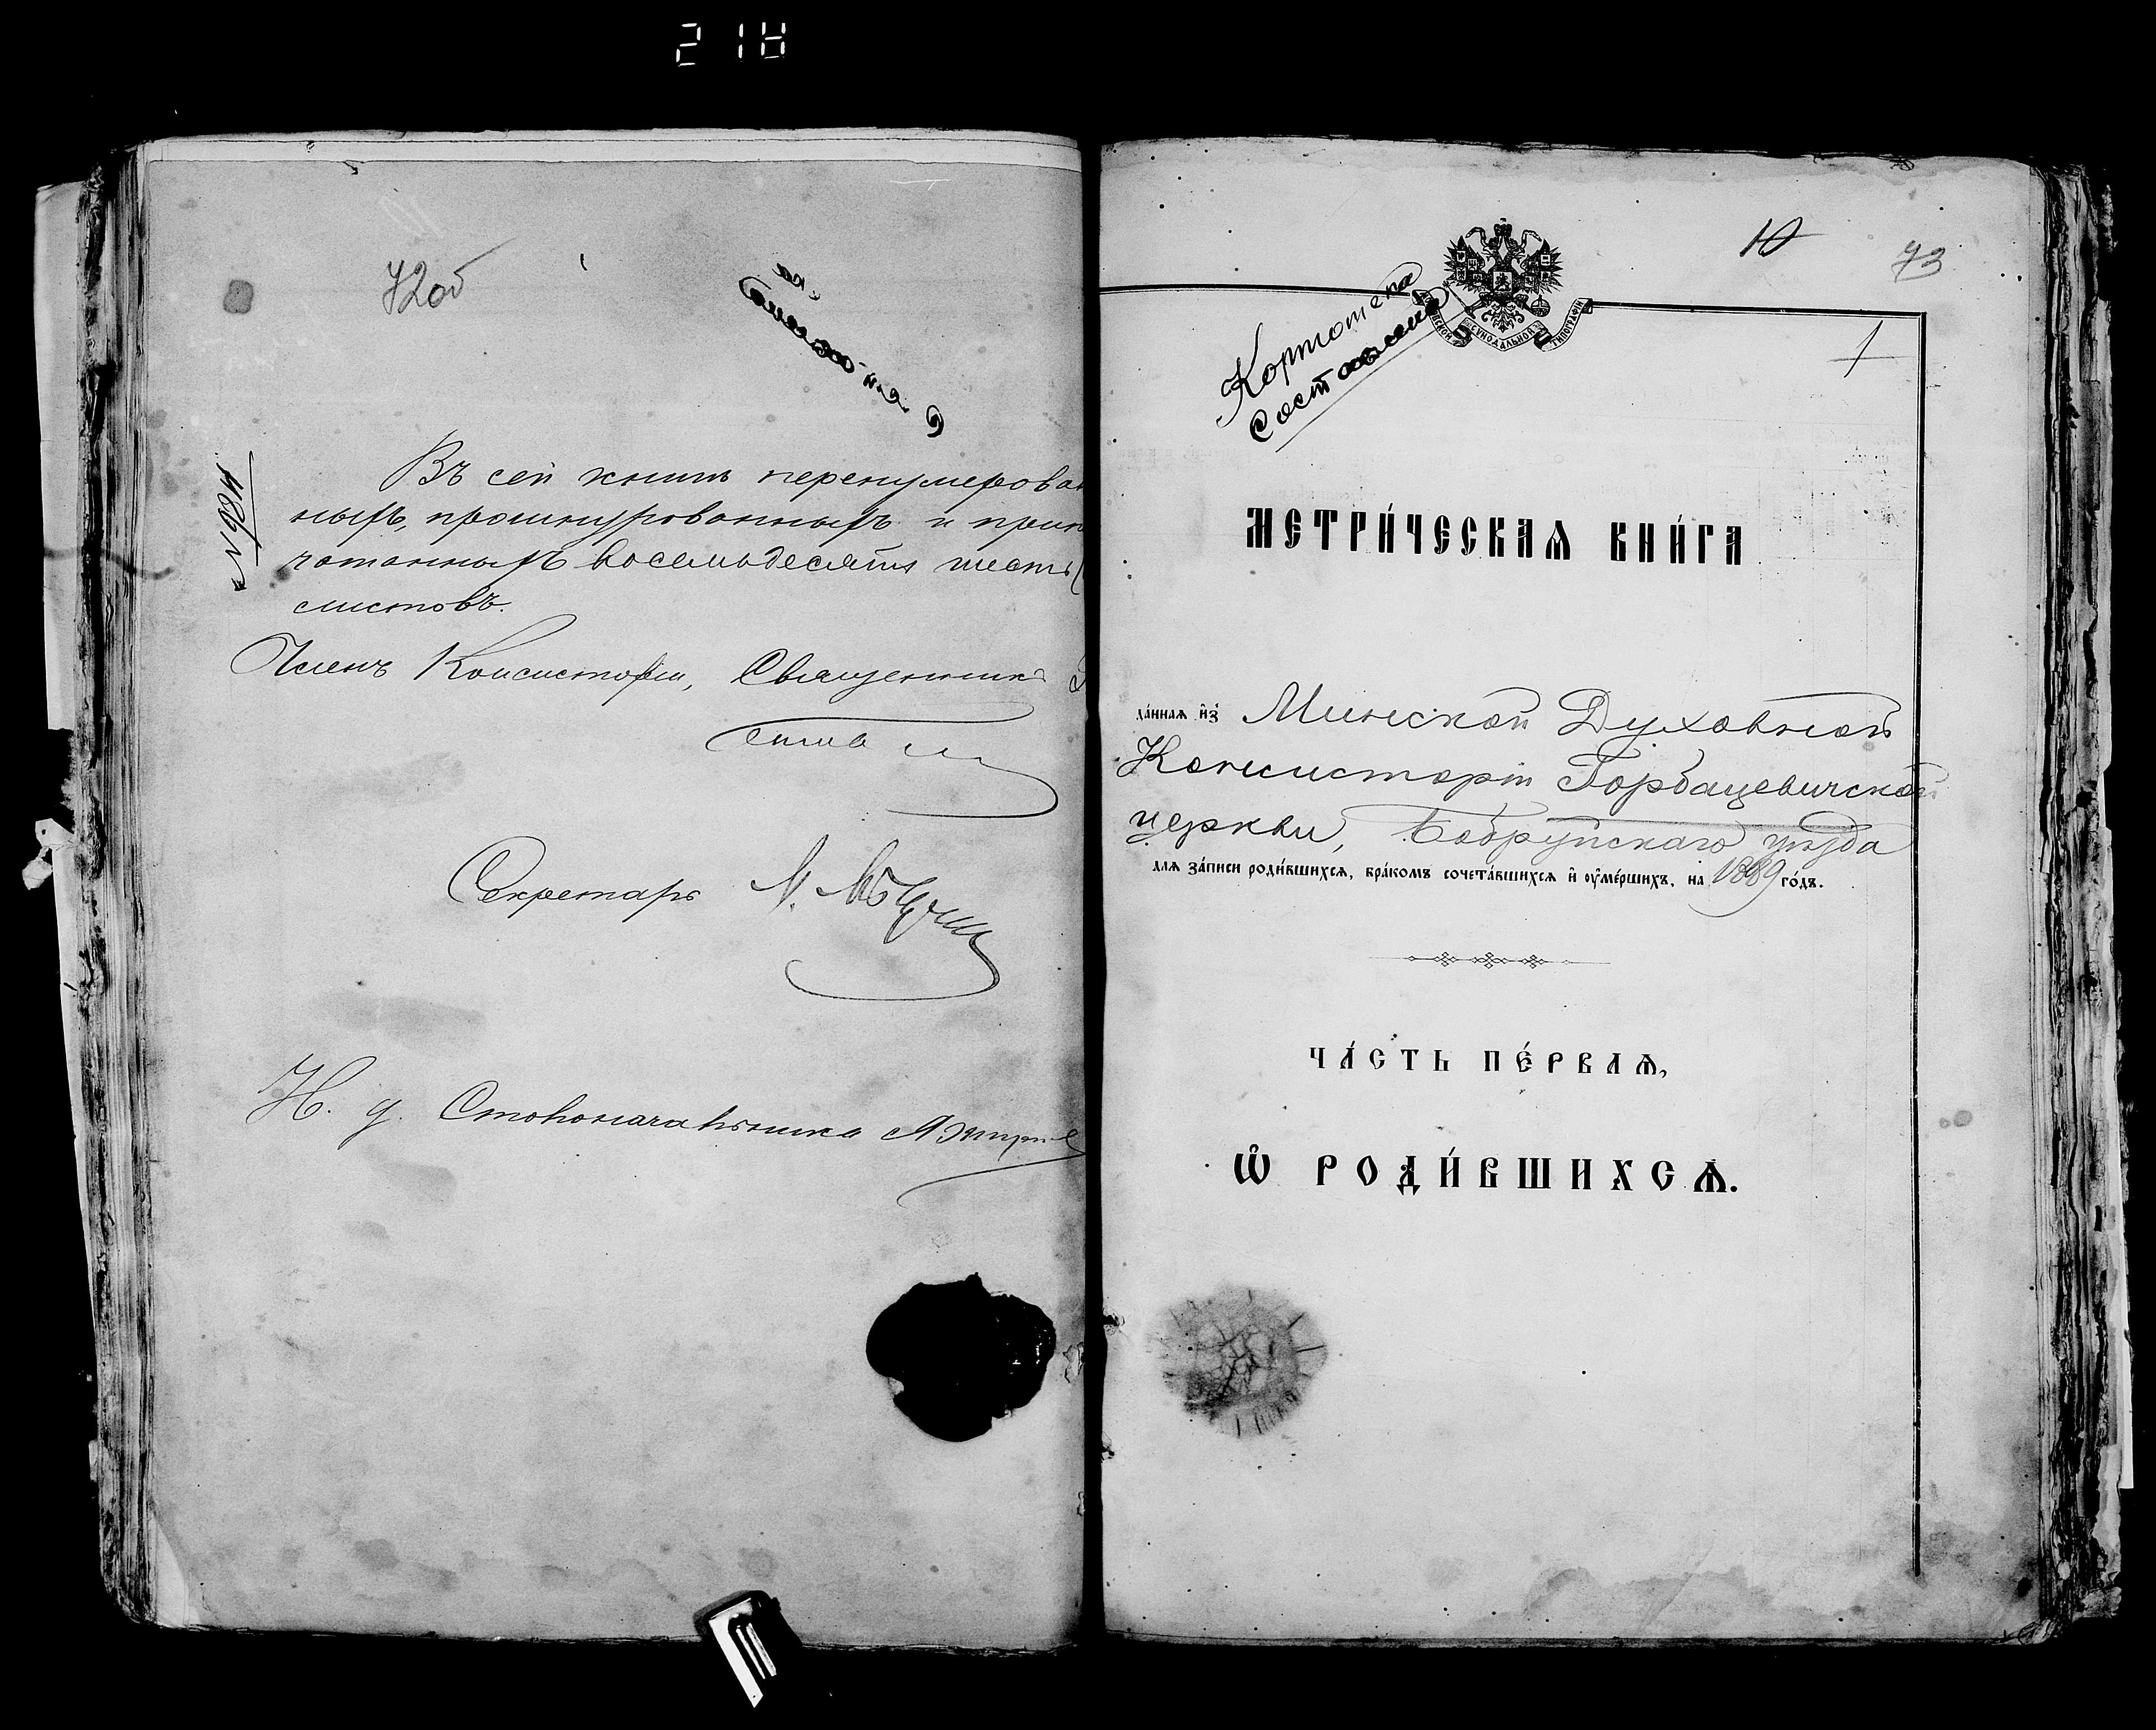 218
72об
№ 486
Въ сей книгѣ перенумерован
ныхъ, прошнурованныхъ и припе
чатанныхъ восемьдесятъ шесть (
листовъ.
Членъ Консисторіи, Священникъ
Секретарь
И. д. Столоначальника
10
73
1
Картотека
Составлена
СѴНОДАЛЬНОЙ ТИПОГРАФІИ
МЕТРИ́ЧЕСКАѦ КНИ́ГА
да́ннаѧ и҆з̾ Минской Духовной
Консисторіи Горбацевичской
церкви, Бобруйскаго уѣзда
для за́писи роди́вшихсѧ, бра́комъ сочета́вшихсѧ и҆ ᲂу҆ме́ршихъ, на 1889 го́дъ.
ЧА́СТЬ ПЕ́РВАѦ,
Ѡ҆ РОДИ́ВШИХСѦ.